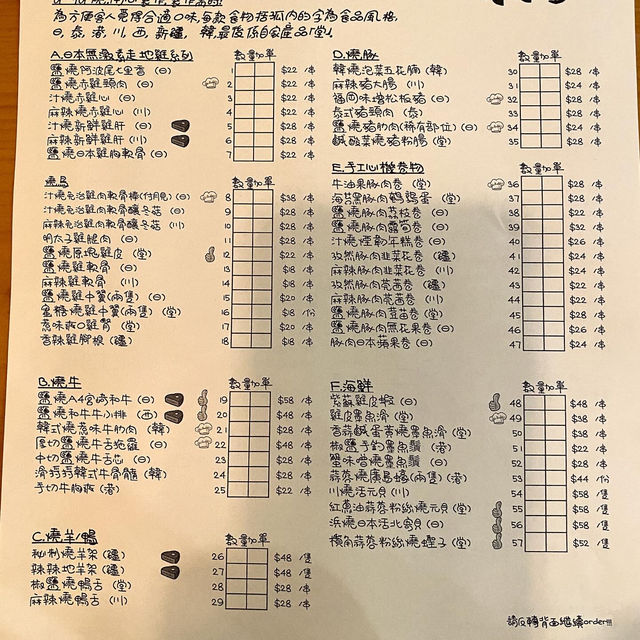 為方便客人選擇合適口味,每款食物括弧內的字為食品風格,
日,泰,港,川,西,新疆,韓,最後係自家産品「堂」
A.日本無激素走地雞系列 數量加單
鹽燒阿波尾七里香 (日) 1 $22 /串
鹽燒赤雞頸肉 (日) 2 $22 /串
汁燒赤雞心 (日) 3 $22 /串
麻辣燒赤雞心 (川) 4 $22 /串
汁燒新鮮雞肝 (日) 5 $28 /串
麻辣燒新鮮雞肝 (川) 6 $28 /串
鹽燒日本雞胸軟骨 (日) 7 $22 /串
燒鳥 數量加單
汁燒免治雞肉軟骨棒(付月見) (日) 8 $38 /串
汁燒免治雞肉軟骨釀冬菇 (日) 9 $28 /串
麻辣免治雞肉軟骨釀冬菇 (川) 10 $28 /串
明太子雞腿肉 (日) 11 $28 /串
鹽燒原塊雞皮 (堂) 12 $22 /串
鹽燒雞軟骨 (日) 13 $18 /串
麻辣雞軟骨 (川) 14 $18 /串
鹽燒雞中翼(兩隻) (堂) 15 $28 /串
蜜糖燒雞中翼(兩隻) (堂) 16 $18 /份
惹味爽口雞腎 (堂) 17 $20 /串
香辣雞腳根 (疆) 18 $18 /串
B.燒牛 數量加單
鹽燒A4宮崎和牛 (日) 19 $58 /串
鹽燒和牛牛小排 (西) 20 $48 /串
韓式燒惹味牛肋肉 (韓) 21 $48 /串
厚切鹽燒牛舌 (日) 22 $48 /串
中切鹽燒牛舌芯 (日) 23 $28 /串
滑捋捋韓式牛骨髓 (韓) 24 $28 /串
手切牛胸爽 (港) 25 $22 /串
C.燒羊/鴨 數量加單
秘制燒羊架 (疆) 26 $48 /隻
辣辣地羊架 (疆) 27 $48 /隻
椒鹽燒鴨舌 (堂) 28 $28 /串
麻辣燒鴨舌 (川) 29 $28 /串
D.燒豚 數量加單
韓燒泡菜五花腩 (韓) 30 $28 /串
麻辣豬大腸 (川) 31 $24 /串
福岡味噌松板豬 (日) 32 $28 /串
泰式豬頸肉 (泰) 33 $28 /串
鹽燒豬肋肉(稀有部位) (日) 34 $28 /串
鹹酸菜燒豬粉腸 (堂) 35 $28 /串
E.手工心機卷物 數量加單
牛油果豚肉卷 (堂) 36 $28 /串
海苔黑豚肉鵪鶉蛋 (堂) 37 $28 /串
鹽燒豚肉荔枝卷 (日) 38 $22 /串
鹽燒豚肉露筍卷 (日) 39 $32 /串
汁燒煙彰年糕卷 (日) 40 $26 /串
孜然豚肉韭菜花卷 (疆) 41 $24 /串
麻辣豚肉韭菜花卷 (川) 42 $24 /串
孜然豚肉芫茜卷 (疆) 43 $22 /串
麻辣豚肉芫茜卷 (川) 44 $22 /串
鹽燒豚肉菠菜卷 (堂) 45 $28 /串
鹽燒豚肉無花果卷 (日) 46 $28 /串
豚肉日本蘋果卷 (日) 47 $24 /串
F.海鮮 數量加單
紫蘇雞皮蝦 (日) 48 $48 /串
雞皮墨魚滑 (堂) 49 $38 /串
香蒜鹹蛋黃燒墨魚滑 (堂) 50 $38 /串
椒鹽手釣墨魚鬚 (港) 51 $22 /串
蟹味噌燒墨魚鬚 (日) 52 $28 /串
蒜蓉燒廣島蠔(兩隻) (港) 53 $44 /份
川燒活元貝 (川) 54 $58 /隻
紅蔥油蒜蓉粉絲燒元貝 (堂) 55 $58 /隻
浜燒日本活北寄貝 (日) 56 $58 /隻
欖角蒜蓉粉絲燒蟶子 (堂) 57 $52 /隻
請反轉背面繼續order!!!